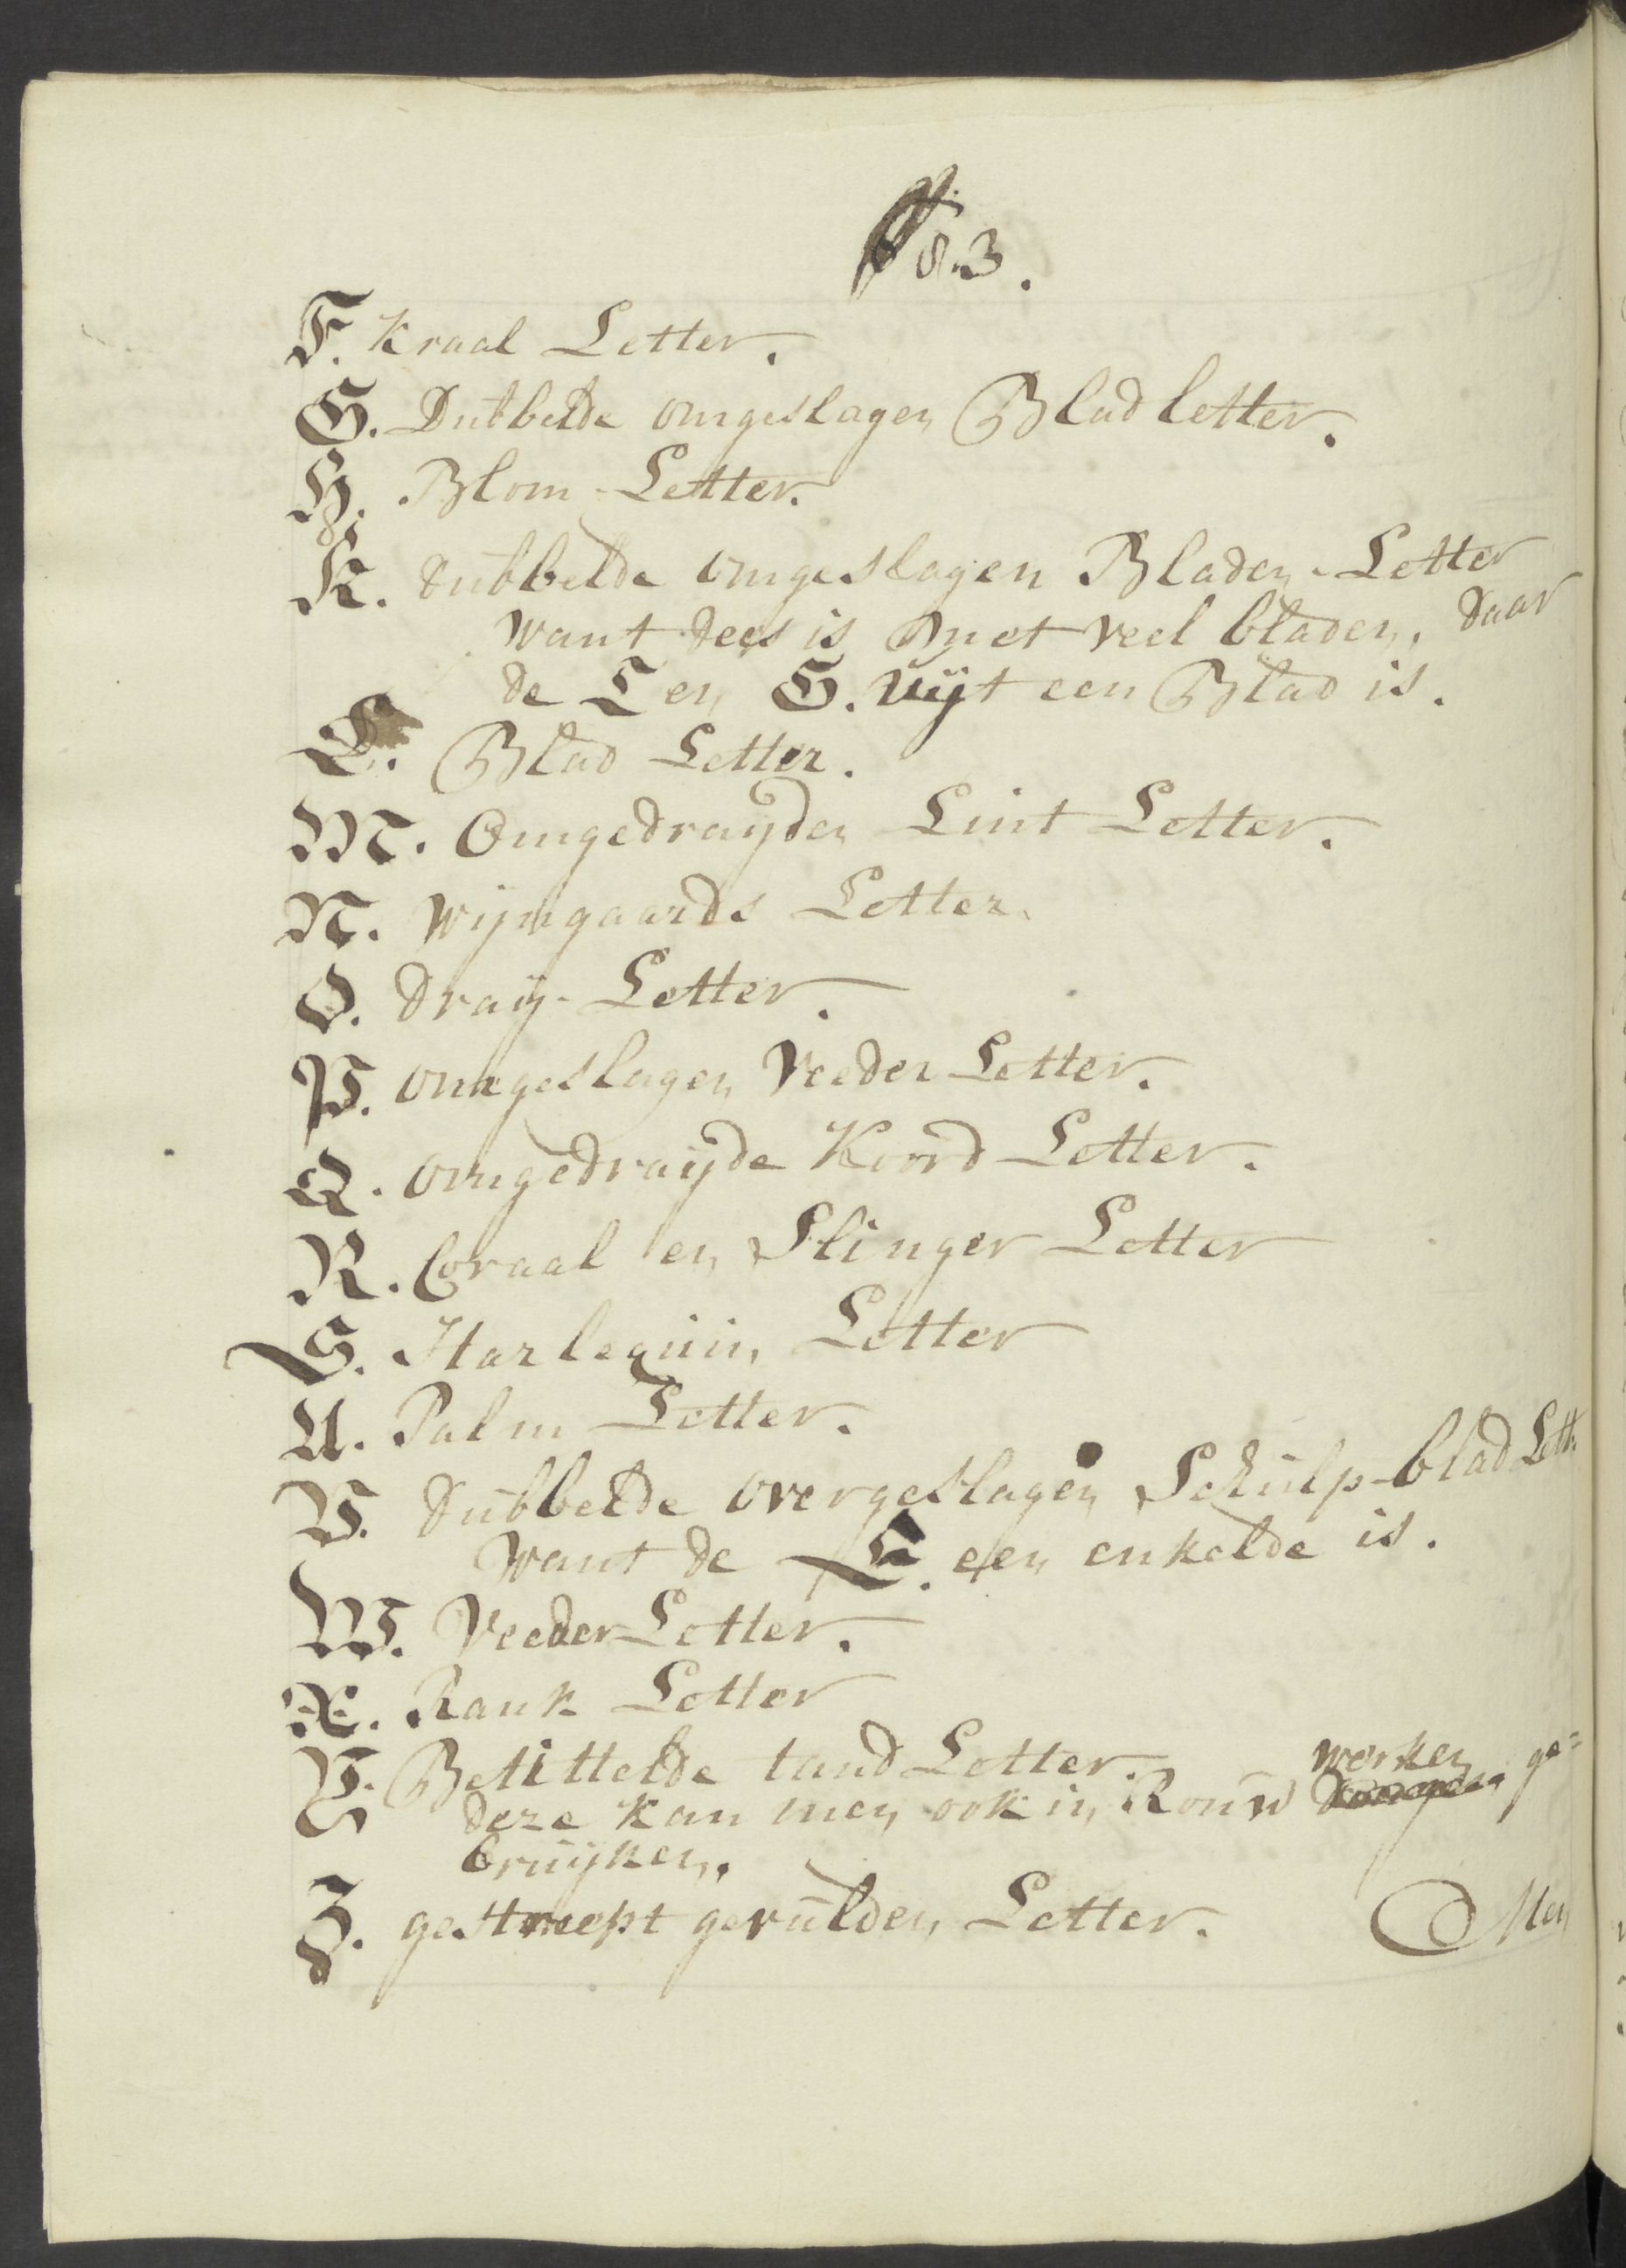 83.
F. Kraal Letter.
G. Dubbelde omgeslagen Bladletter.
H. Blom-Letter.
K. dubbelde omgeslagen Bladen-Letter
want dees is met veel bladen, daar
de E en G. uijt een Blad is.
L. Blad Letter.
M. Omgedraijden Lint Letter.
N. Wijngaards Letter.
O. draij-Letter.
P. omgeslagen Veeder Letter.
Q. omgedraijde Koord Letter.
R. Coraal en Slinger Letter
S. Harlequin Letter
U. Palm Letter.
V. dubbelde overgeslagen Schulp-blad Lett.
want de L. een enkelde is.
W. Veeder Letter.
X. Rank Letter
Y. Betittelde tand Letter.
deze kan men ook in Rouw werken ge=
bruijken.
Z. gestreept gevulden Letter.
Men